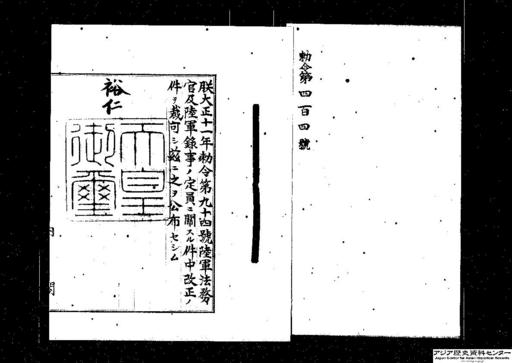 勅令第四百四號
朕大正十一年勅令第九十四號陸軍法務
官及陸軍錄事ノ定員ニ關スル件中改正ノ
件ヲ裁可シ茲ニ之ヲ公布セシム
裕仁
天皇
御璽
内閣
アジア歴史資料センター
Japan Center for Asian Historical Records